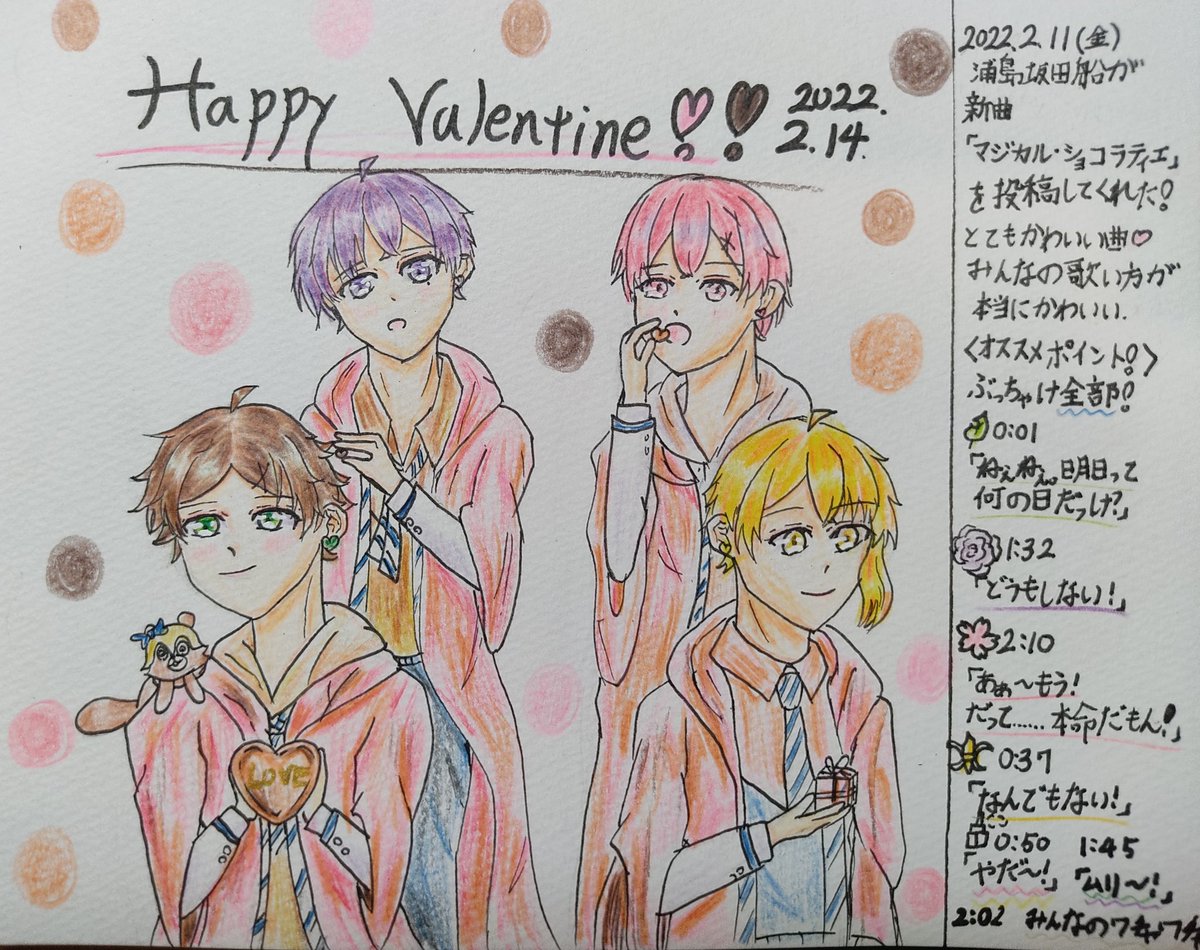 Happy Valentine!!
2022.
2.14.
LOVE
2022.2.11(金)
浦島坂田船が
新曲
「マジカル・ショコラティエ」
を投稿してくれた!
とてもかわいい曲♡
みんなの歌い方が
本当にかわいい.
<オススメポイント!>
ぶっちゃけ全部!
0:01
「ねぇねぇ。明日って
何の日だっけ?」
1:32
「どうもしない!」
2:10
「あぁ〜もう!
だって……本命だもん!」
0:37
「なんでもない!」
0:50 1:45
「やだ〜!」「ムリ〜!」
2:02 みんなのワキャワチャ